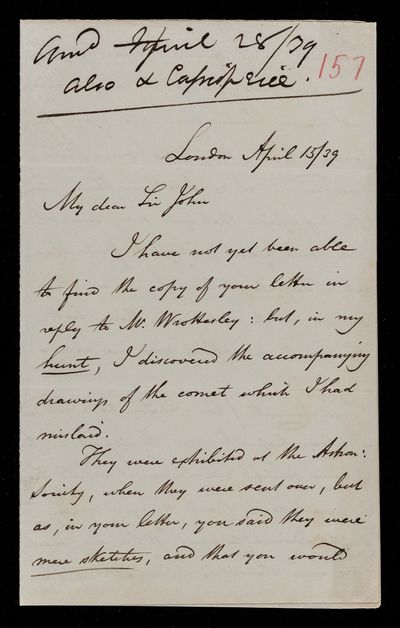 And April 28/39
also α Cassiopeiæ. 157
London April 15/39
My dear Sir John
I have not yet been able
to find the copy of your letter in
reply to Mr. Wrottesley: but, in my
hunt, I discovered the accompanying
drawings of the comet which I had
mislaid.
They were exhibited at the Astron:
Society, when they were sent over, but
as, in your letter, you said they were
mere sketches, and that you would